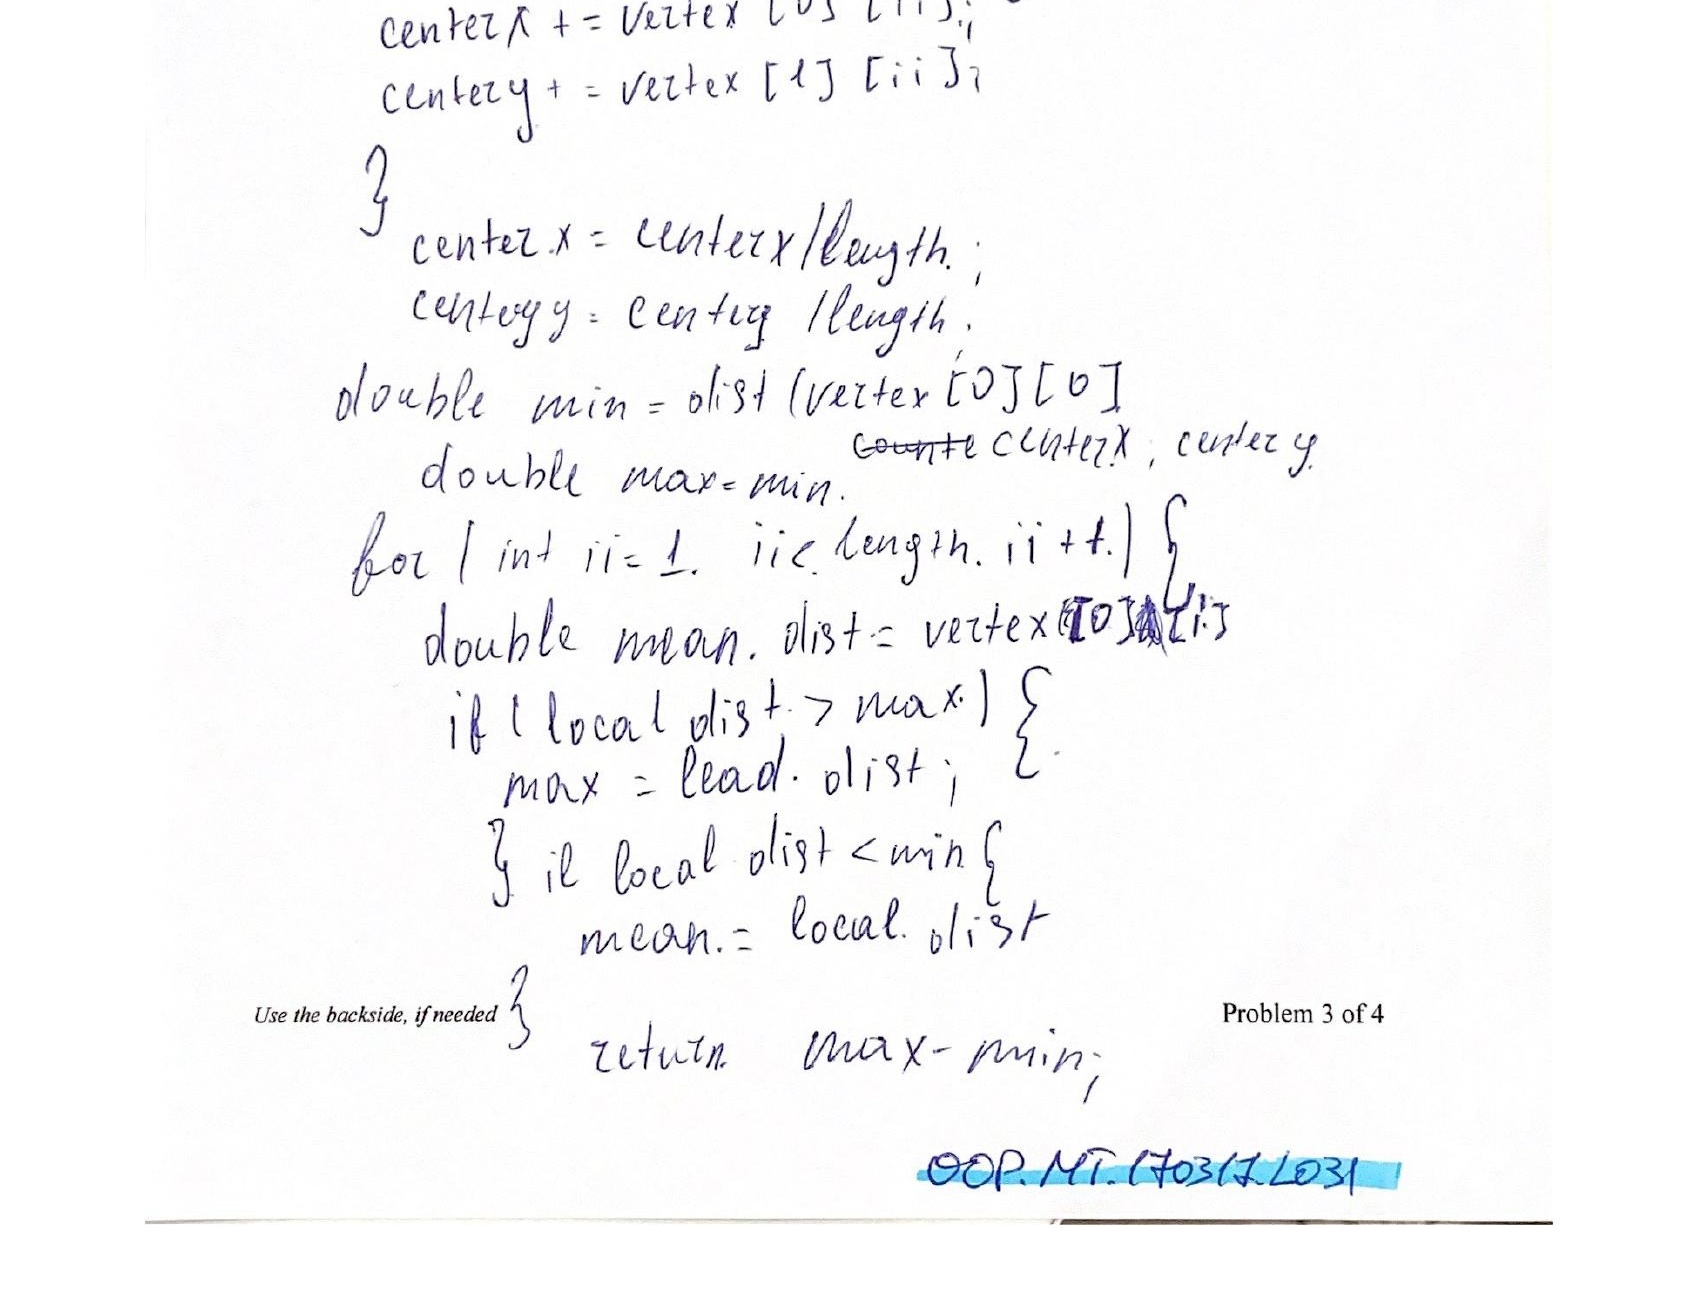 centerx += vertex [0] [ii];
centery + = vertex [1] [ii];
}
center.x = centerx/length.;
centery = centery /length.;
double min = dist (vertex [0][0]
counte centerx, center y.
double max = min.
for ( int ii = 1. ii < length. ii ++.) {
double mean. dist = vertex [0] [i]
if ( local dist. > max.) {
max = lead. dist;
} if local dist < min {
mean. = local. dist
Use the backside, if needed }
Problem 3 of 4
return max - min;
OOP.MT.170317.L031